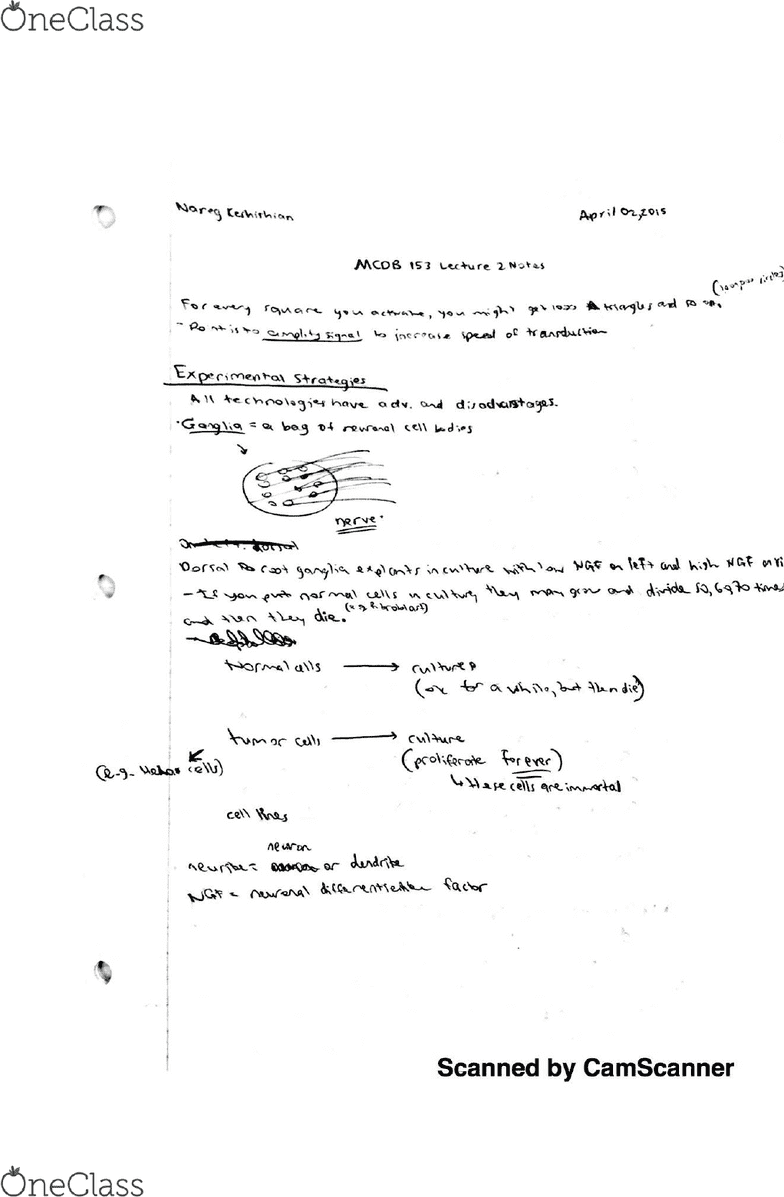 OneClass
Nareg Keshishian
April 02, 2015
MCDB 153 Lecture 2 Notes
For every square you activate, you might get 1000 triangles and so on.
- Point is to amplify signal to increase speed of transduction
Experimental Strategies
All technologies have adv. and disadvantages.
· Ganglia = a bag of neuronal cell bodies
nerve.
Dorsal root ganglia explants in culture with low NGF on left and high NGF on
- If you put normal cells in culture, they may grow and divide 50, 60, 70 times
and then they die. (e.g. fibroblast)
Normal cells → culture
(ok for a while, but then die)
tumor cells → culture
(e.g. cells) (proliferate forever)
↳ these cells are immortal
cell lines
neuron
neurite = or dendrite
NGF = neuronal differentiation factor
Scanned by CamScanner
OneClass